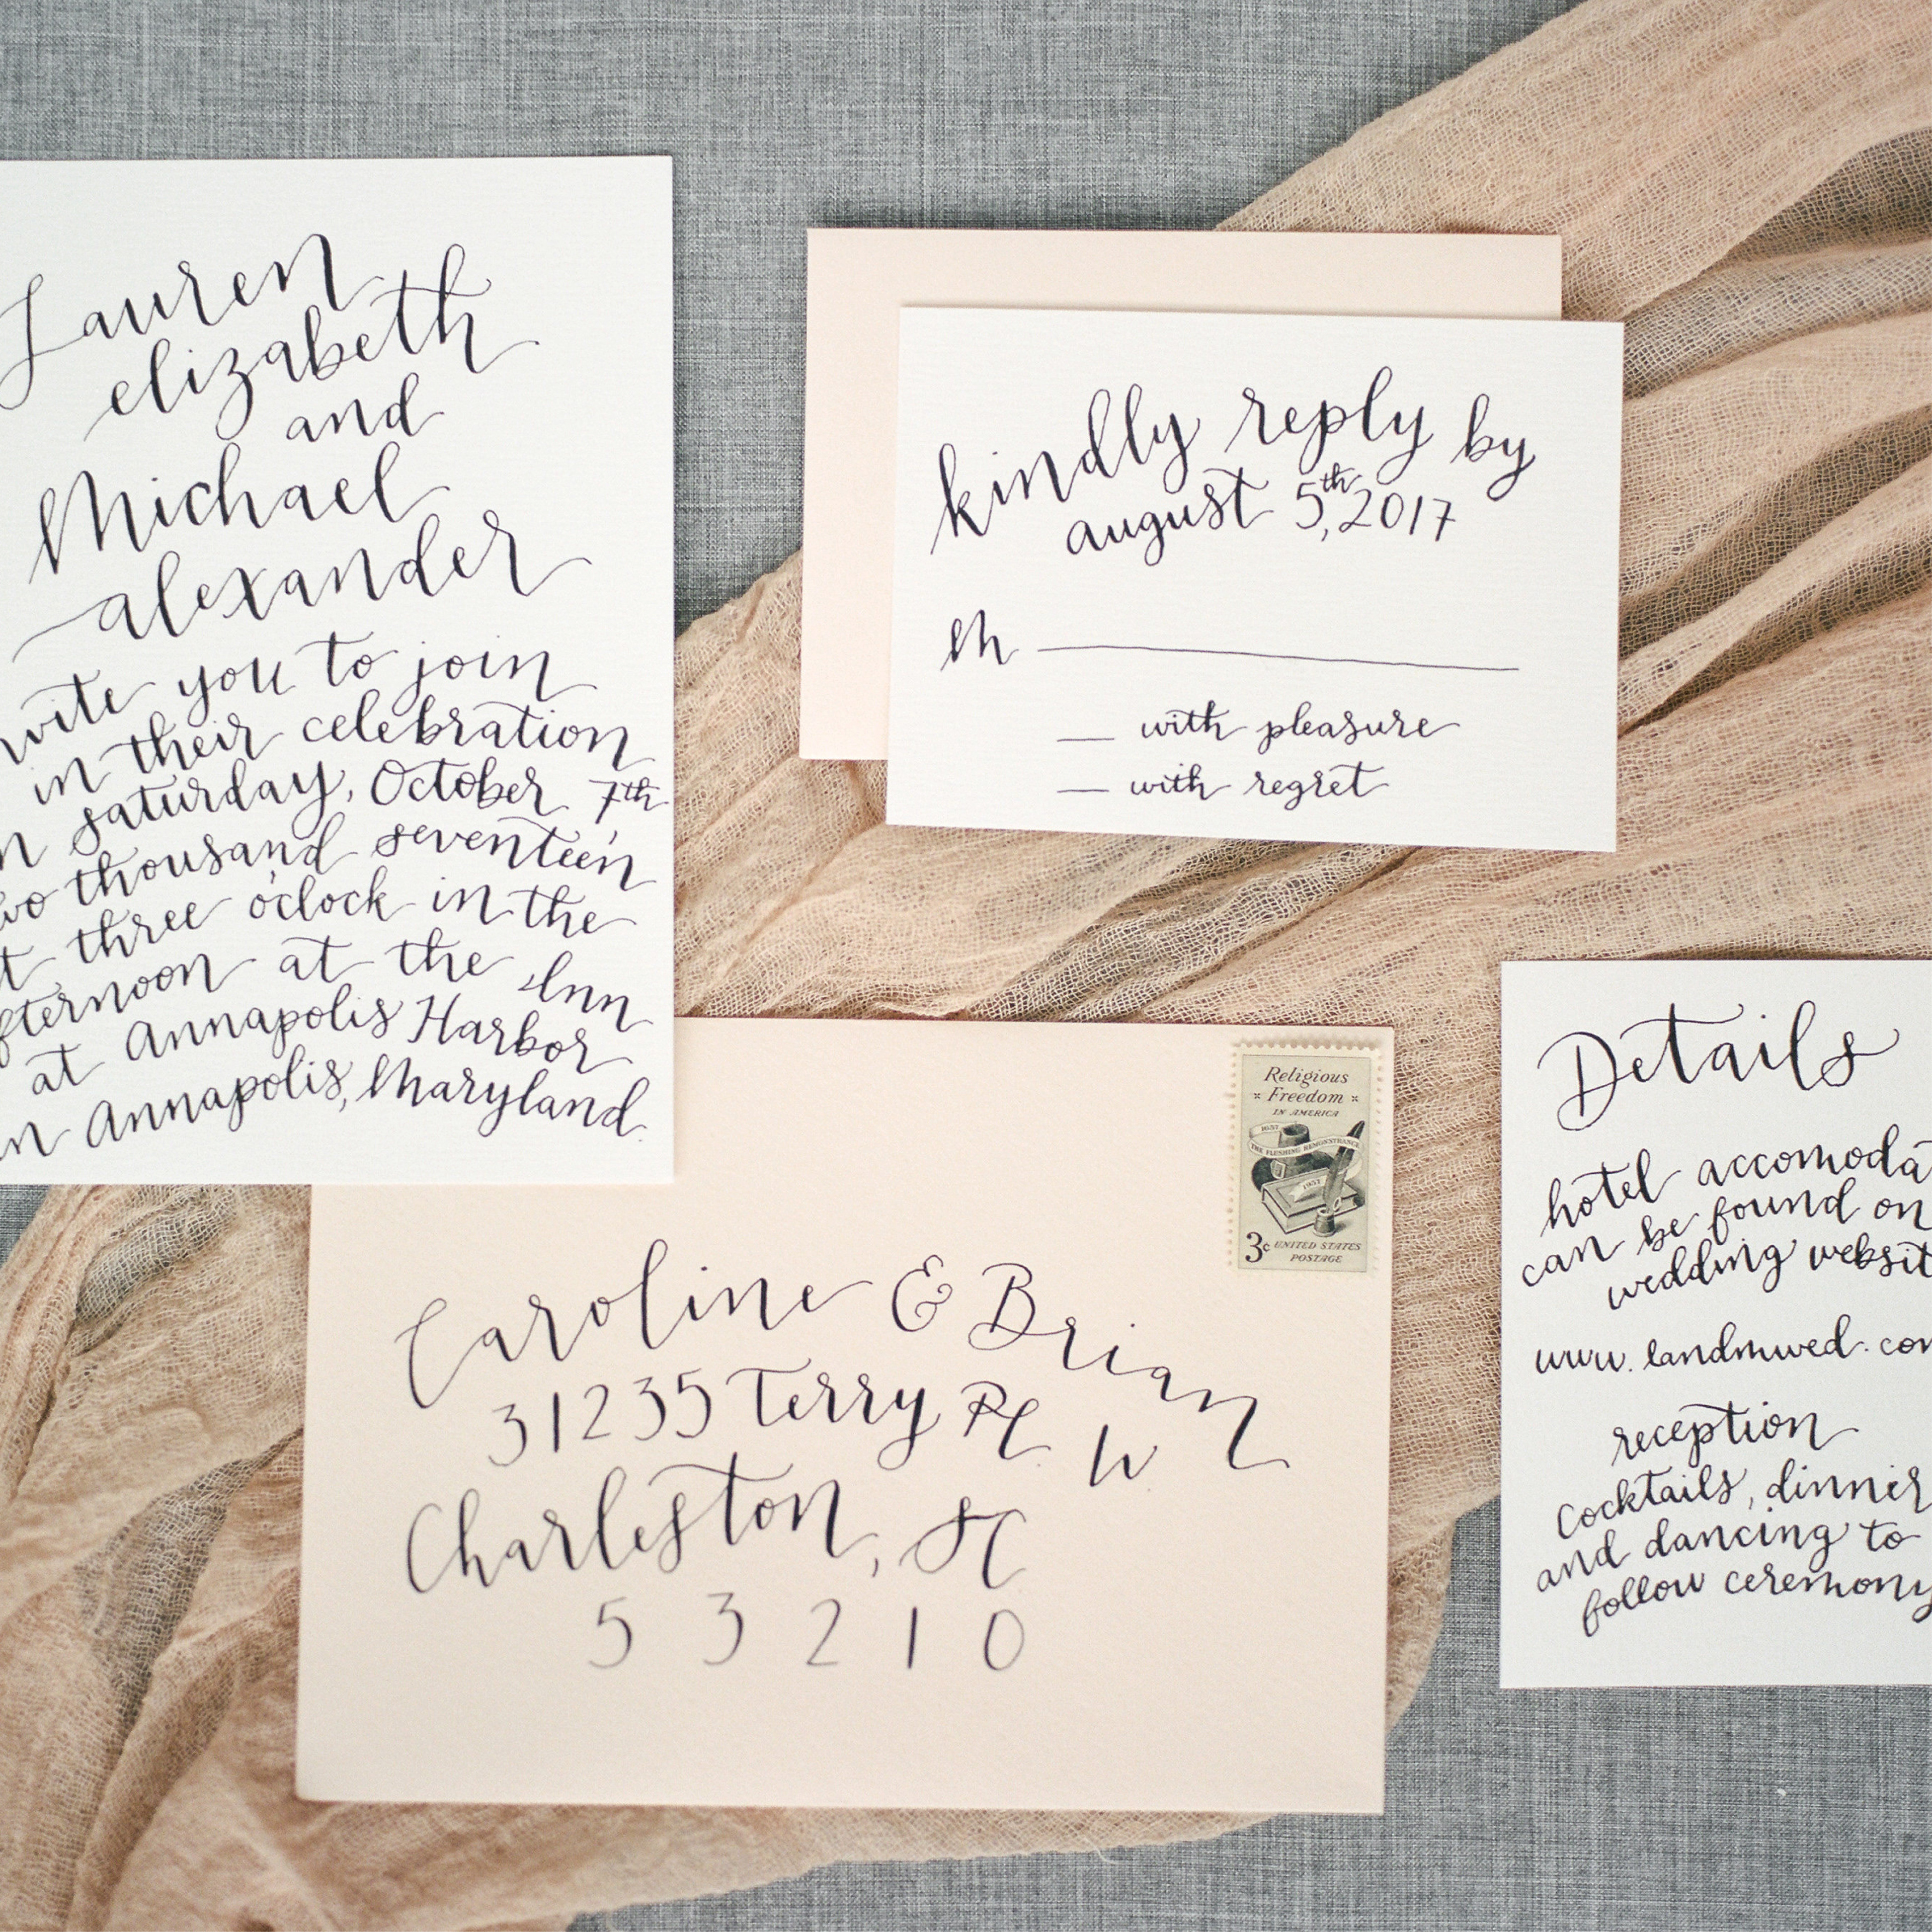 Lauren
elizabeth
and
Michael
alexander
invite you to join
in their celebration
on saturday, October 7th,
two thousand seventeen
at three o'clock in the
afternoon at the Inn
at Annapolis Harbor
in Annapolis, Maryland.
kindly reply by
august 5th, 2017
M
with pleasure
with regret
Religious
Freedom
IN AMERICA
1657
THE FLUSHING REMONSTRANCE
1957
3c UNITED STATES
POSTAGE
Caroline & Brian
31235 Terry Pl. W.
Charleston, SC
53210
Details
hotel accomodat
can be found on
wedding websit
www.landmwed.com
reception
Cocktails, dinner
and dancing to
follow ceremony